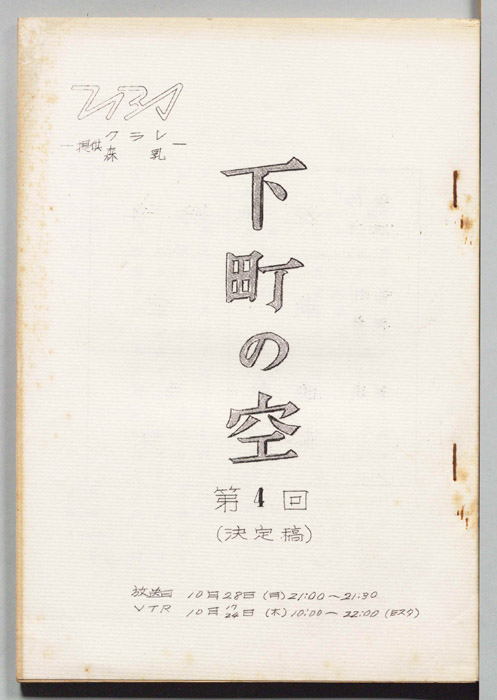 提供 クラレ
森乳
下町の空
第4回
(決定稿)
放送日 10月28日(月)21:00~21:30
VTR 10月17 24日(木)10:00~22:00(Bスタ)